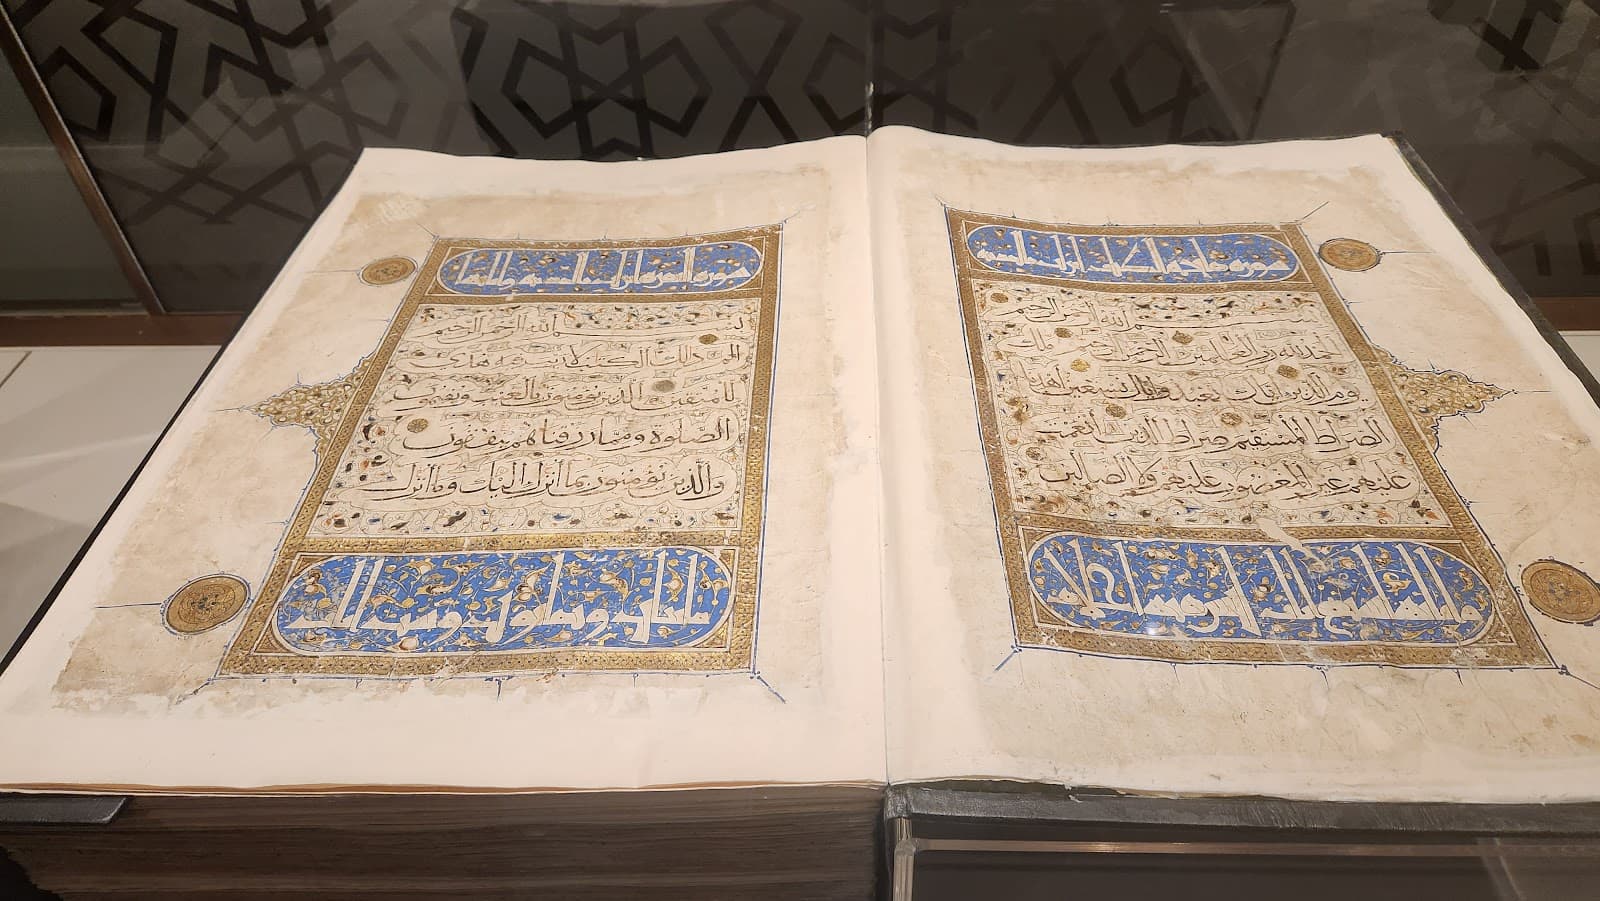 سورة فاتحة الكتاب
بسم الله الرحمن الرحيم
الحمد لله رب العالمين الرحمن الرحيم ملك
يوم الدين اياك نعبد واياك نستعين اهدنا
الصراط المستقيم صراط الذين أنعمت
عليهم غير المغضوب عليهم ولا الضالين
سورة البقرة
بسم الله الرحمن الرحيم
الم ذلك الكتب لا ريب فيه هدى
للمتقين الذين يؤمنون بالغيب ويقيمون
الصلوة ومما رزقناهم ينفقون
والذين يؤمنون بما أنزل اليك وما أنزل